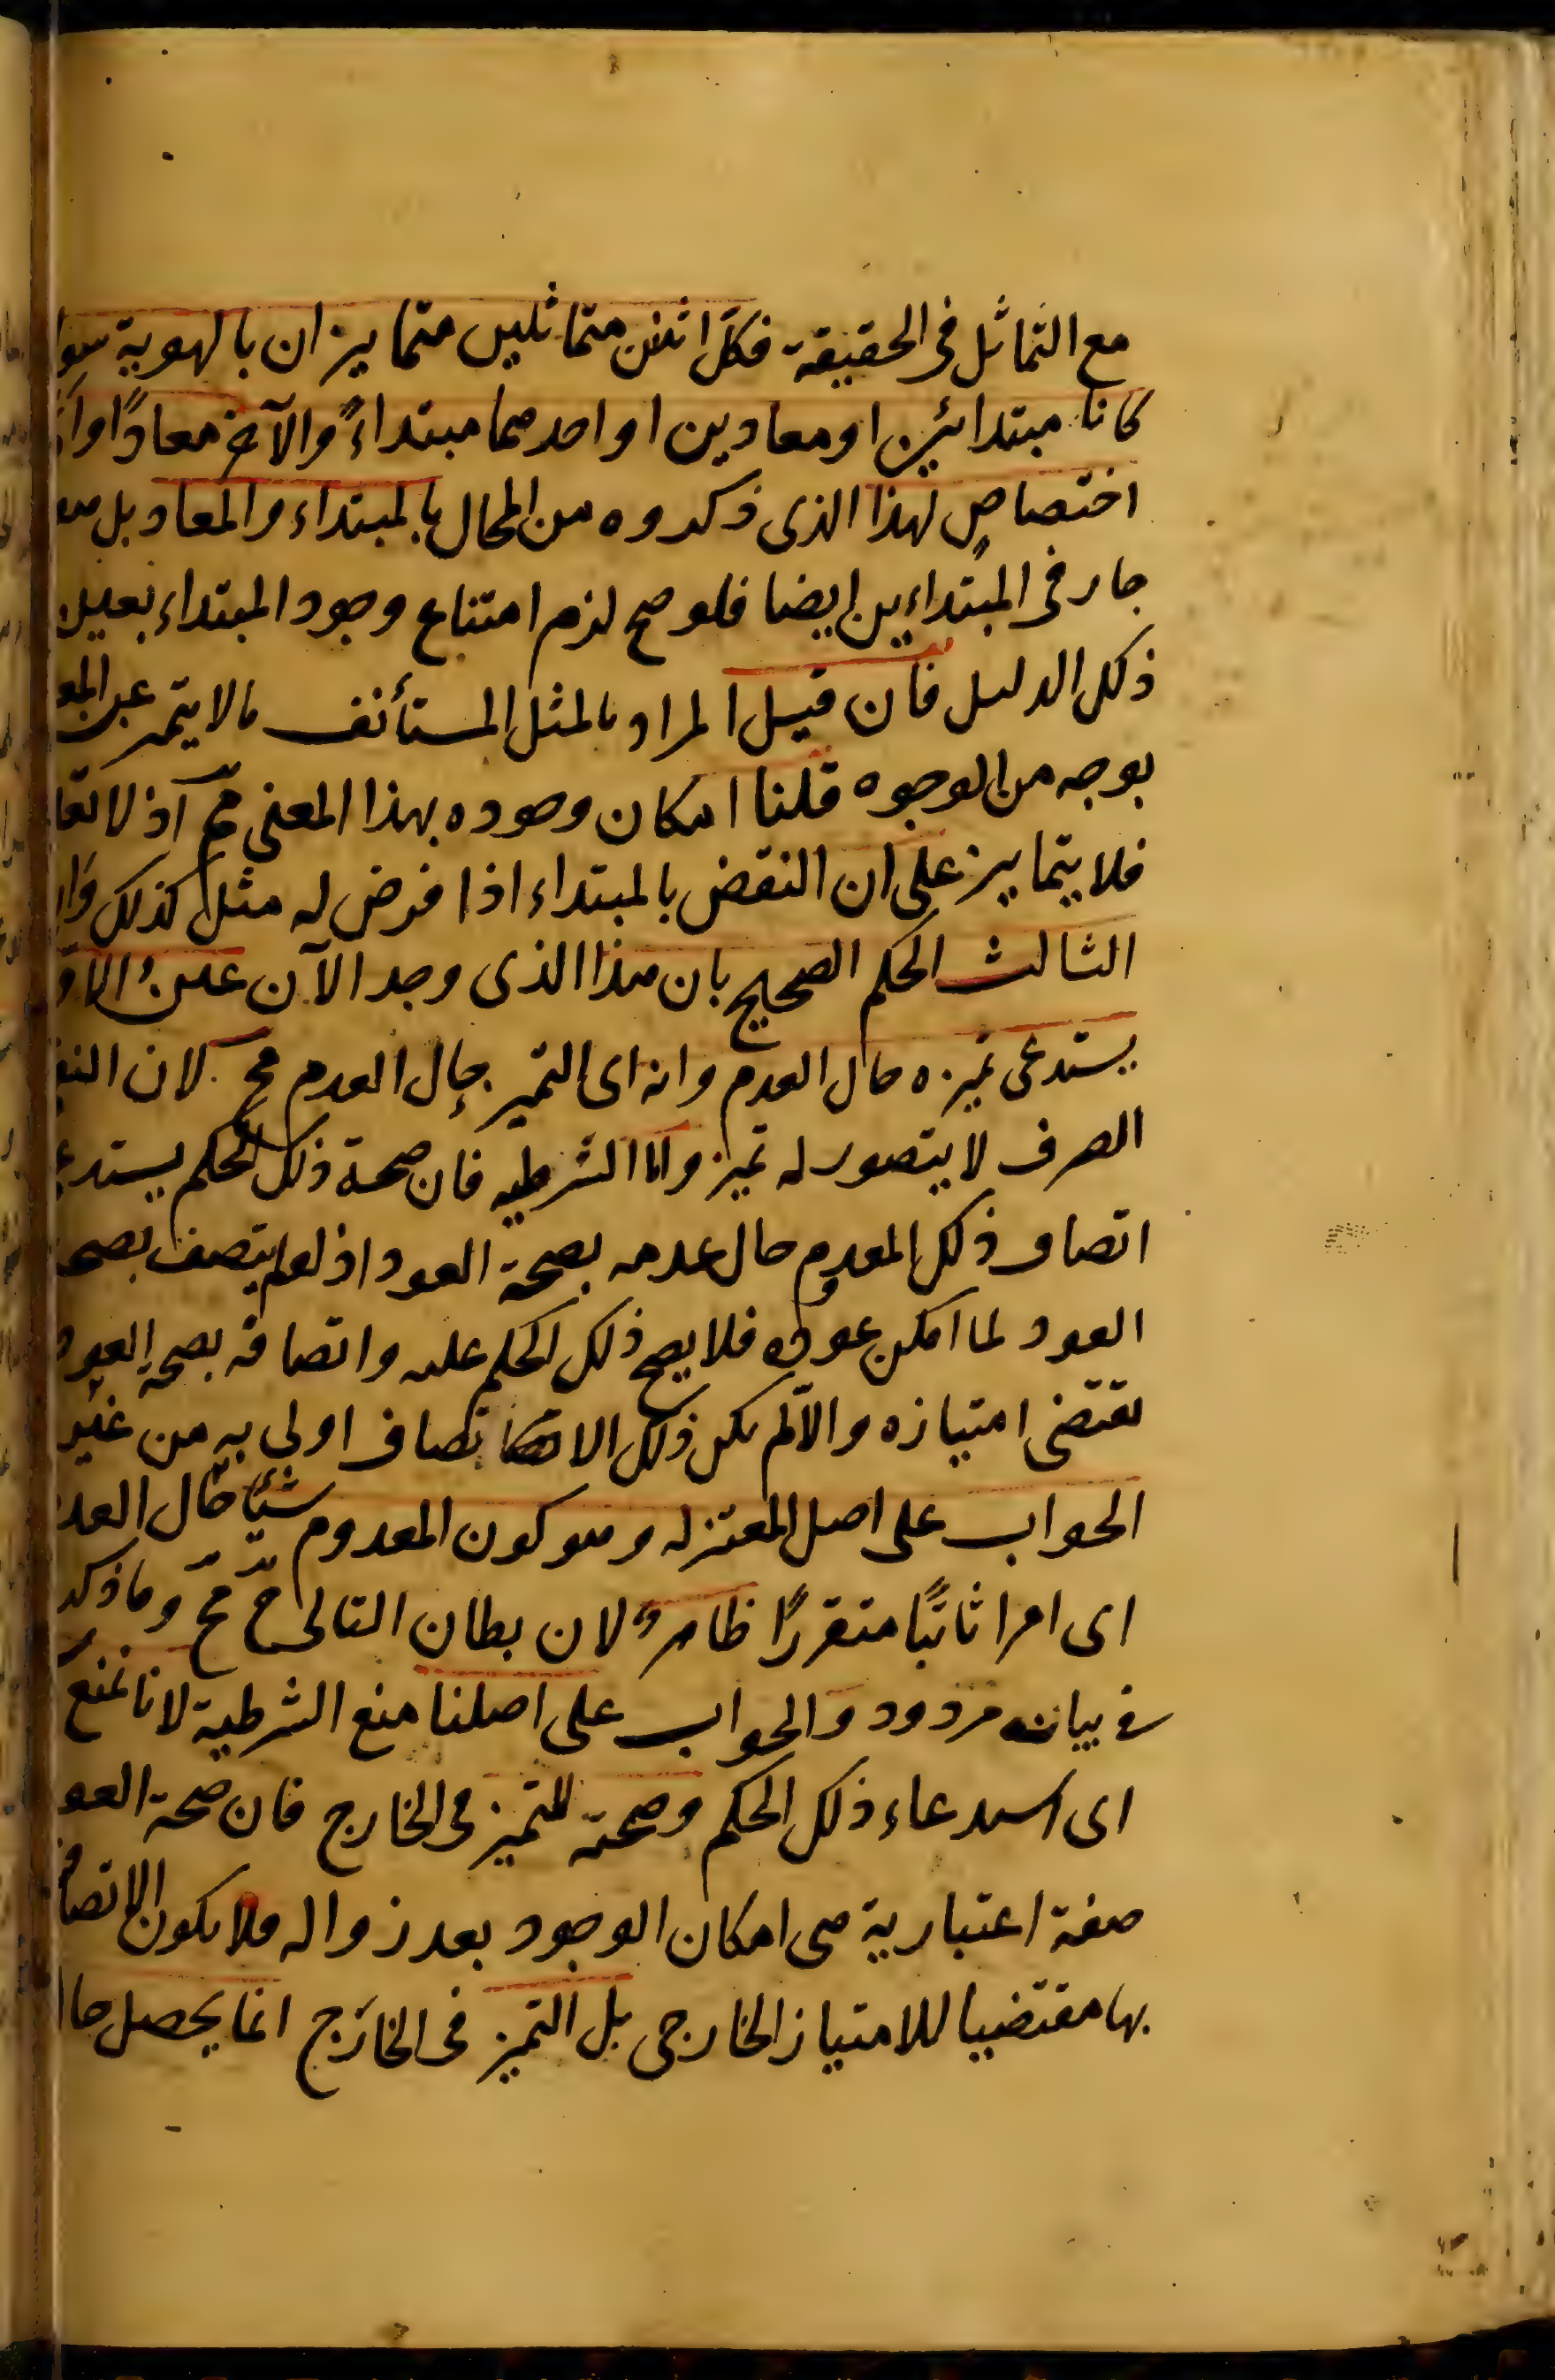 مع التماثل فى الحقيقة فكل اثنين متماثلين متمايزان بالهوية سوا
كانا مبتدائين او معادين او احدهما مبتداءً والآخر معادًا
اختصاص لهذا الذى ذكروه من المحال بالمبتداء والمعاد بل هو
جار فى المبتداءين ايضا فلو صح لزم امتناع وجود المبتداء بعين
ذلك الدليل فان قيل المراد بالمثل المستأنف مالا يتميز عن المع
بوجه من الوجوه قلنا امكان وجوده بهذا المعنى مم اذ لا تعا
فلا يتمايز على ان النقض بالمبتداء اذا فرض له مثل كذلك وار
الثالث الحكم الصحيح بان هذا الذى وجد الآن عين الاو
يستدعى تميزه حال العدم وانه اى التميز حال العدم مح لان النف
الصرف لا يتصور له تميز واما الشرطيه فان صحة ذلك الحكم يستدع
اتصاف ذلك المعدوم حال عدمه بصحة العود اذ لو لم يتصف بصح
العود لما امكن عوده فلا يصح ذلك الحكم عليه واتصافه بصحة العود
يقتضى امتيازه والا لم يكن ذلك الاتصاف اولى به من غير
الجواب على اصل المعتزله وهو كون المعدوم شيئا حال العد
اى امرا ثابتًا متقررًا ظاهر لان بطان التالى ح مم وما ذكر
فى بيانه مردود والجواب على اصلنا منع الشرطية لانا نمنع
اى استدعاء ذلك الحكم وصحته للتميز فى الخارج فان صحة العو
صفة اعتبارية هى امكان الوجود بعد زواله فلا يكون الاتصا
بها مقتضيا للامتياز الخارجى بل التميز فى الخارج انما يحصل حا